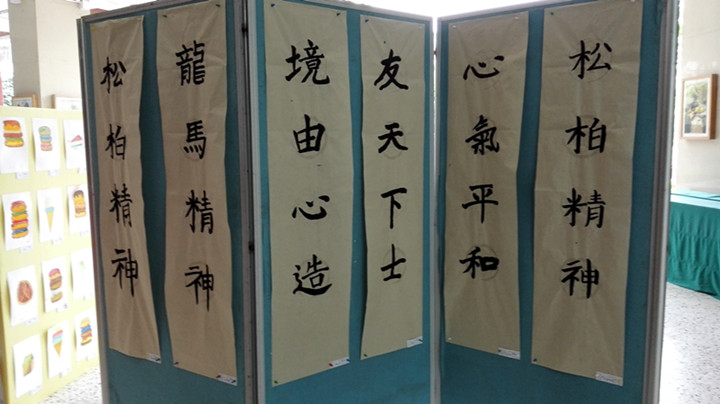 松柏精神
心氣平和
友天下士
境由心造
龍馬精神
松柏精神